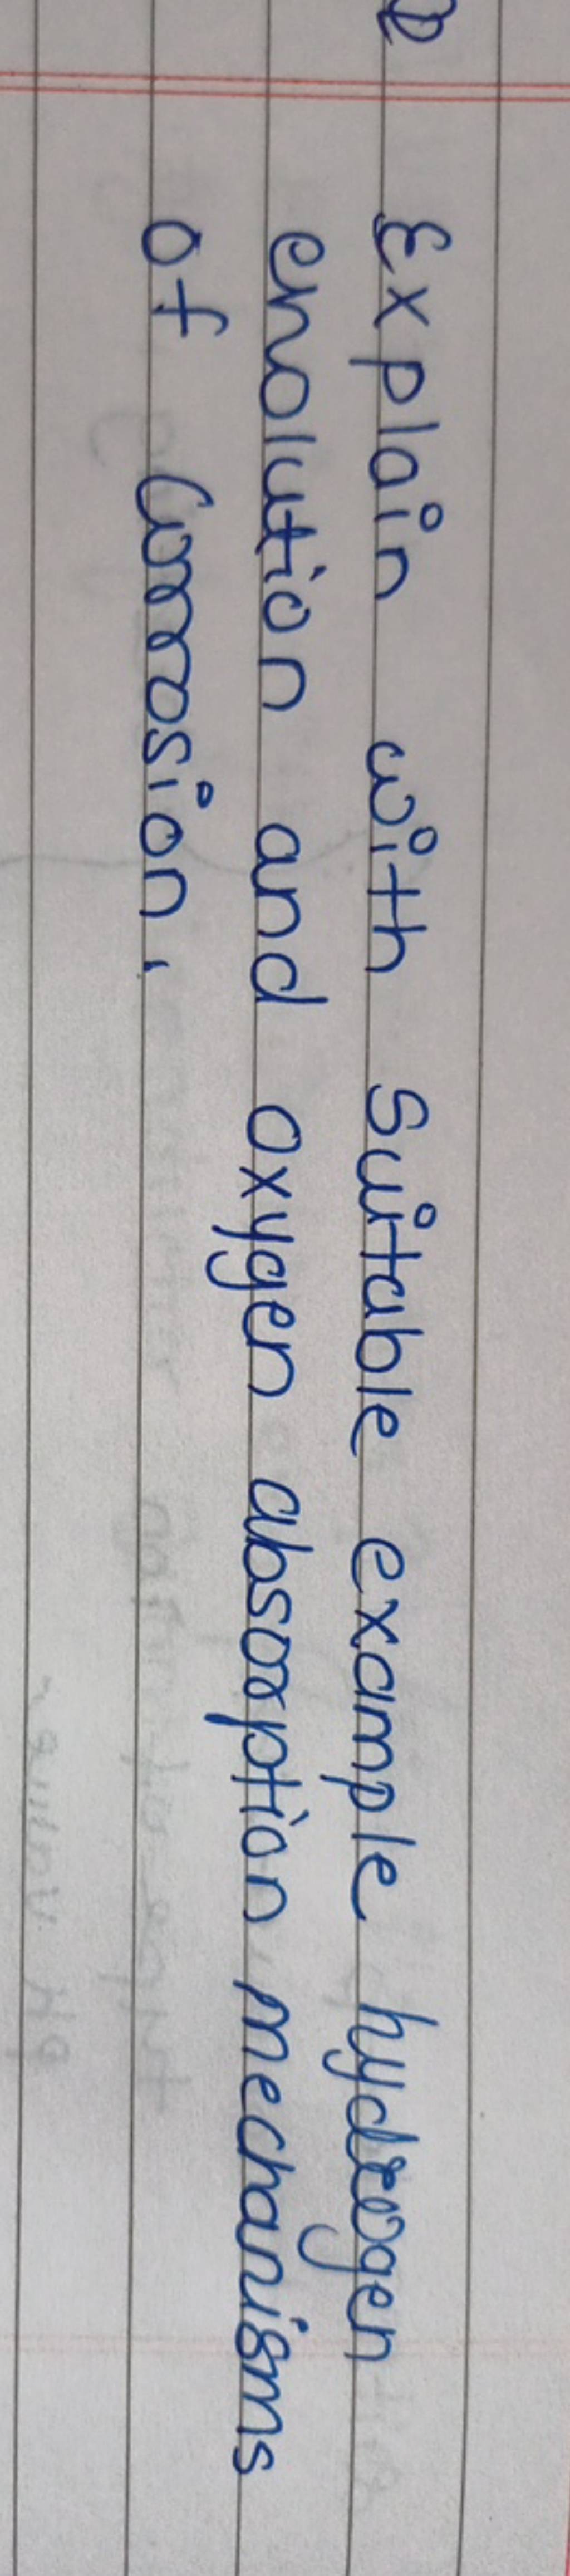 Explain with suitable example hydrogen
enolution and oxygen absorption mechanisms
of Corrosion.